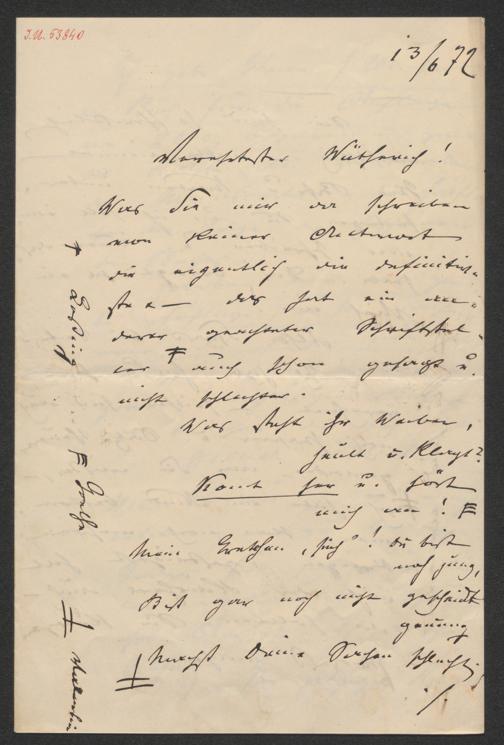 I.N. 53840
13/6 72
Verehrtester Wütherich!
Was Sie mir da schreiben
von keiner Antwort
die eigentlich die definitiv-
ste — das hat ein an-
derer geachteter Schriftstel-
ler auch schon gesagt u.
nicht schlechter.
Was steht ihr Weiber,
heult u. klagt?
Komt her u. hört
mich an!
Mein Gretchen, sieh'! du bist
noch jung,
Bist gar noch nicht gescheidt
genung
Machst Deine Sachen schlecht;
./.
Lessing
Goethe